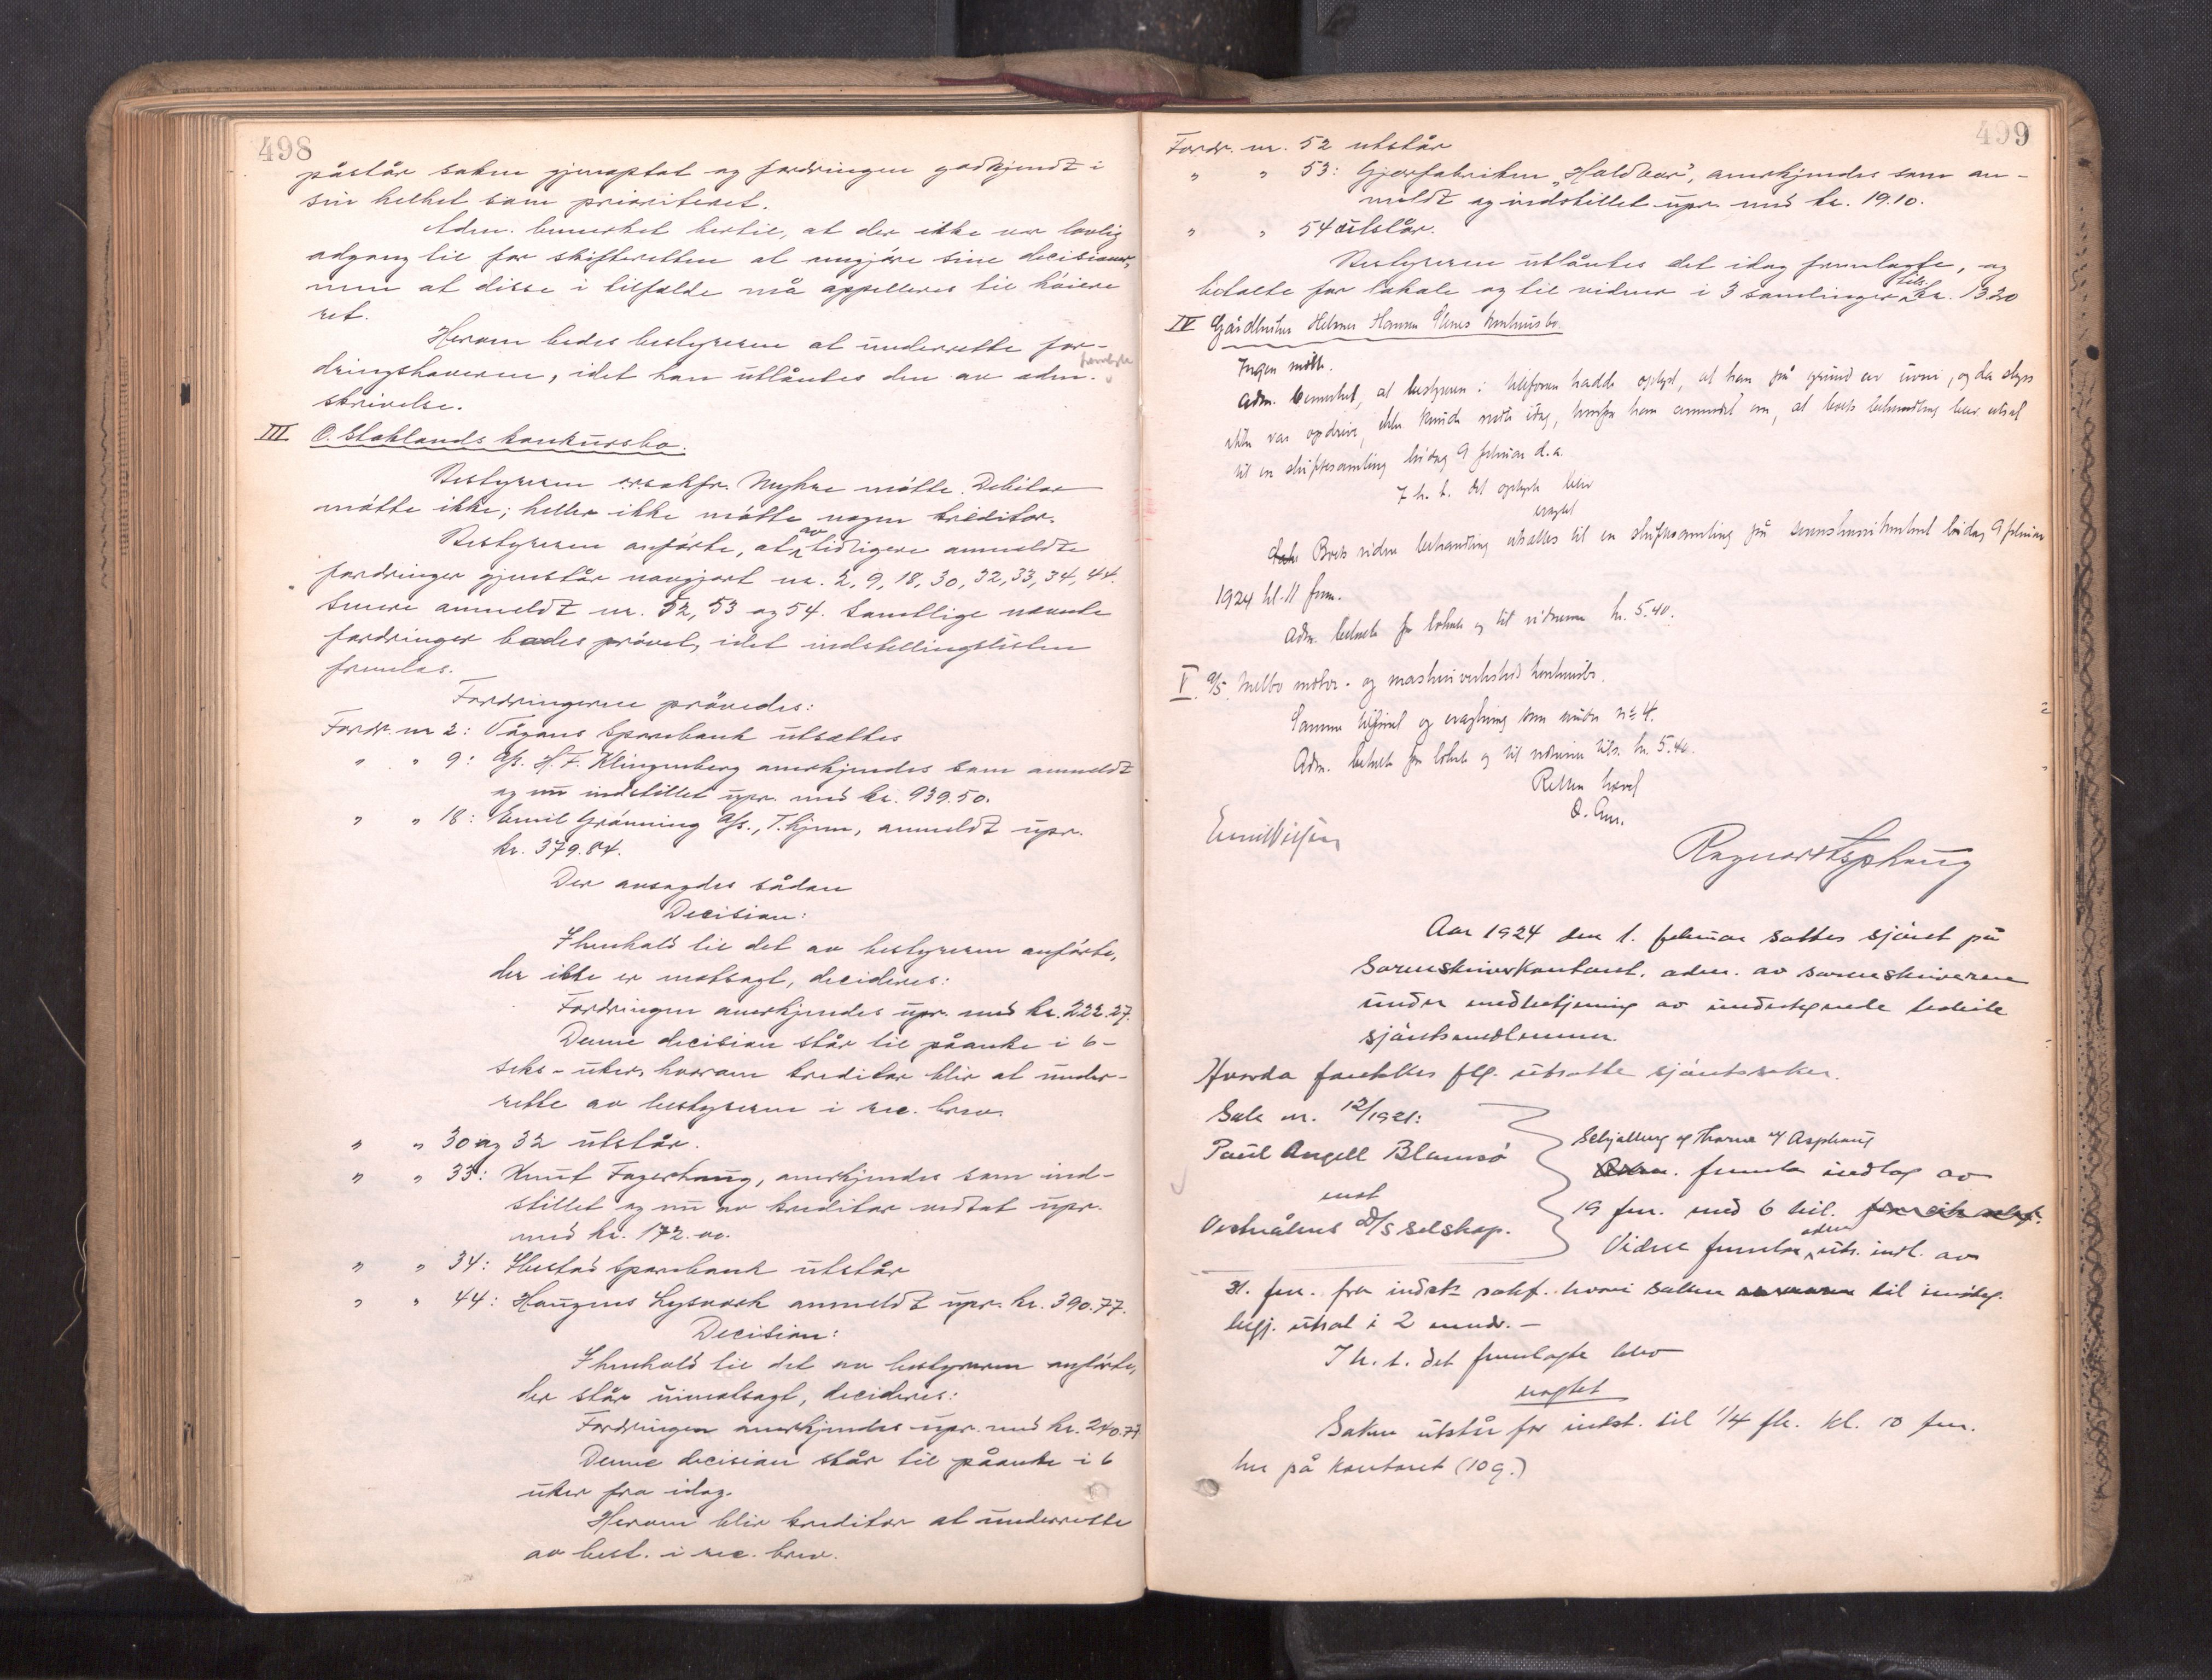 498
påstår saken gjenoptat og fordringen godkjendt i
sin helhet som prioriteret.
Adm. bemerket hertil, at der ikke var lovlig
adgang til for skifteretten at omgjöre sine decisioner,
men at disse i tilfælde må appelleres til höiere
ret.
Herom bedes bestyreren at underrette for-
dringshaveren, idet han utlåntes den av adm. fremlagte
skrivelse.
III O. Staklands konkursbo.
Bestyreren o.r.sakfr. Myhre mötte. Debitor
mötte ikke; heller ikke mötte nogen kreditor.
Bestyreren anförte, at av tidligere anmeldte
fordringer gjenstår uavgjort nr. 2, 9, 18, 30, 32, 33, 34, 44.
Senere anmeldt nr. 52, 53 og 54. Samtlige nævnte
fordringer bedes prövet, idet indstillingslisten
fremlas.
Fordringerne prövedes:
Fordr. nr 2: Vågans Sparebank utsættes
" " 9: A/s. H. F. Klingenberg anerkjendes som anmeldt
og nu indstillet upr. med kr. 939.50.
" " 18: Emil Grönning A/s., T.hjem, anmeldt upr.
kr. 379.84.
Der avsagdes sådan
Decision:
I henhold til det av bestyreren anförte,
der ikke er motsagt, decideres:
Fordringen anerkjendes upr. med kr. 222.27.
Denne decision står til påanke i 6-
seks-uker, hvorom kreditor blir at under-
rette av bestyreren i rec. brev.
" " 30 og 32 utstår.
" " 33: Knut Fagerhaug, anerkjendes som ind-
stillet og nu av kreditor vedtat upr.
med kr. 172.00.
" " 34: Hustad Sparebank utstår
" " 44: Haugens Lysverk anmeldt upr. kr. 390.77.
Decision:
I henhold til det av bestyreren anförte,
der står uimotsagt, decideres:
Fordringen anerkjendes upr. med kr. 240.77
Denne decision står til påanke i 6
uker fra idag.
Herom blir kreditor at underrette
av best. i rec. brev.
499
Fordr. nr. 52 utstår
" " 53: Gjærfabriken "Holdbar", anerkjendes som an-
meldt og indstillet upr. med kr. 19.10.
" " 54 utstår.
Bestyreren utlåntes det idag fremlagte, og
betalte for lokale og til vidner i 3 samlinger tils. kr. 13.20
IV Gårdbruker Helmer Hansen konkursbo.
Ingen mötte.
Adm. bemerket, at bestyreren i telefonen hadde oplyst, at han på grund av uveir, og da skyss
ikke var opdrive, ikke kunde möte idag, hvorfor han anmodet om, at boets behandling blev utsat
til en skiftesamling lördag 9 februar d.a.
I h. t. det oplyste blev
eragtet
Boets videre behandling utsættes til en skiftesamling på sorenskriverkontoret lördag 9 februar
1924 kl. 11 fm.
Adm. betalte for lokale og til vidnerne kr. 5.40.
V. A/S Melbo motor- og maskinverksteds konkursbo.
Samme tilförsel og eragtning som under nr. 4.
Adm. betalte for lokale og til vidnerne tils. kr. 5.40.
Retten hævet
Emil Nilsen
Ragnar Asphaug
Aar 1924 den 1. februar sattes sjöret på
Sorenskriverkontoret. adm. av sorenskriveren
under medbetjening av undertegnede tilkaldte
sjöretsmedlemmer.
Hvorda foretokes flg. utsatte sjöretssaker.
Sak nr. 12/1921:
Paul Angell Blamsö
mot
Vestrålens D/S selskap.
Schjelberg og Thorne v/ Asphaug
fremla indlæg av
19 fm. med 6 bil.
Videre fremla adm. uts. indl. av
31. fm. fra indst. sakf. hvori saken til imöteg.
begj. utsat i 2 mndr.-
I h. t. det fremlagte blev
eragtet
Saken utstår for indst. til 1/4 fk. kl. 10 fm.
her på kontoret (10 g.)